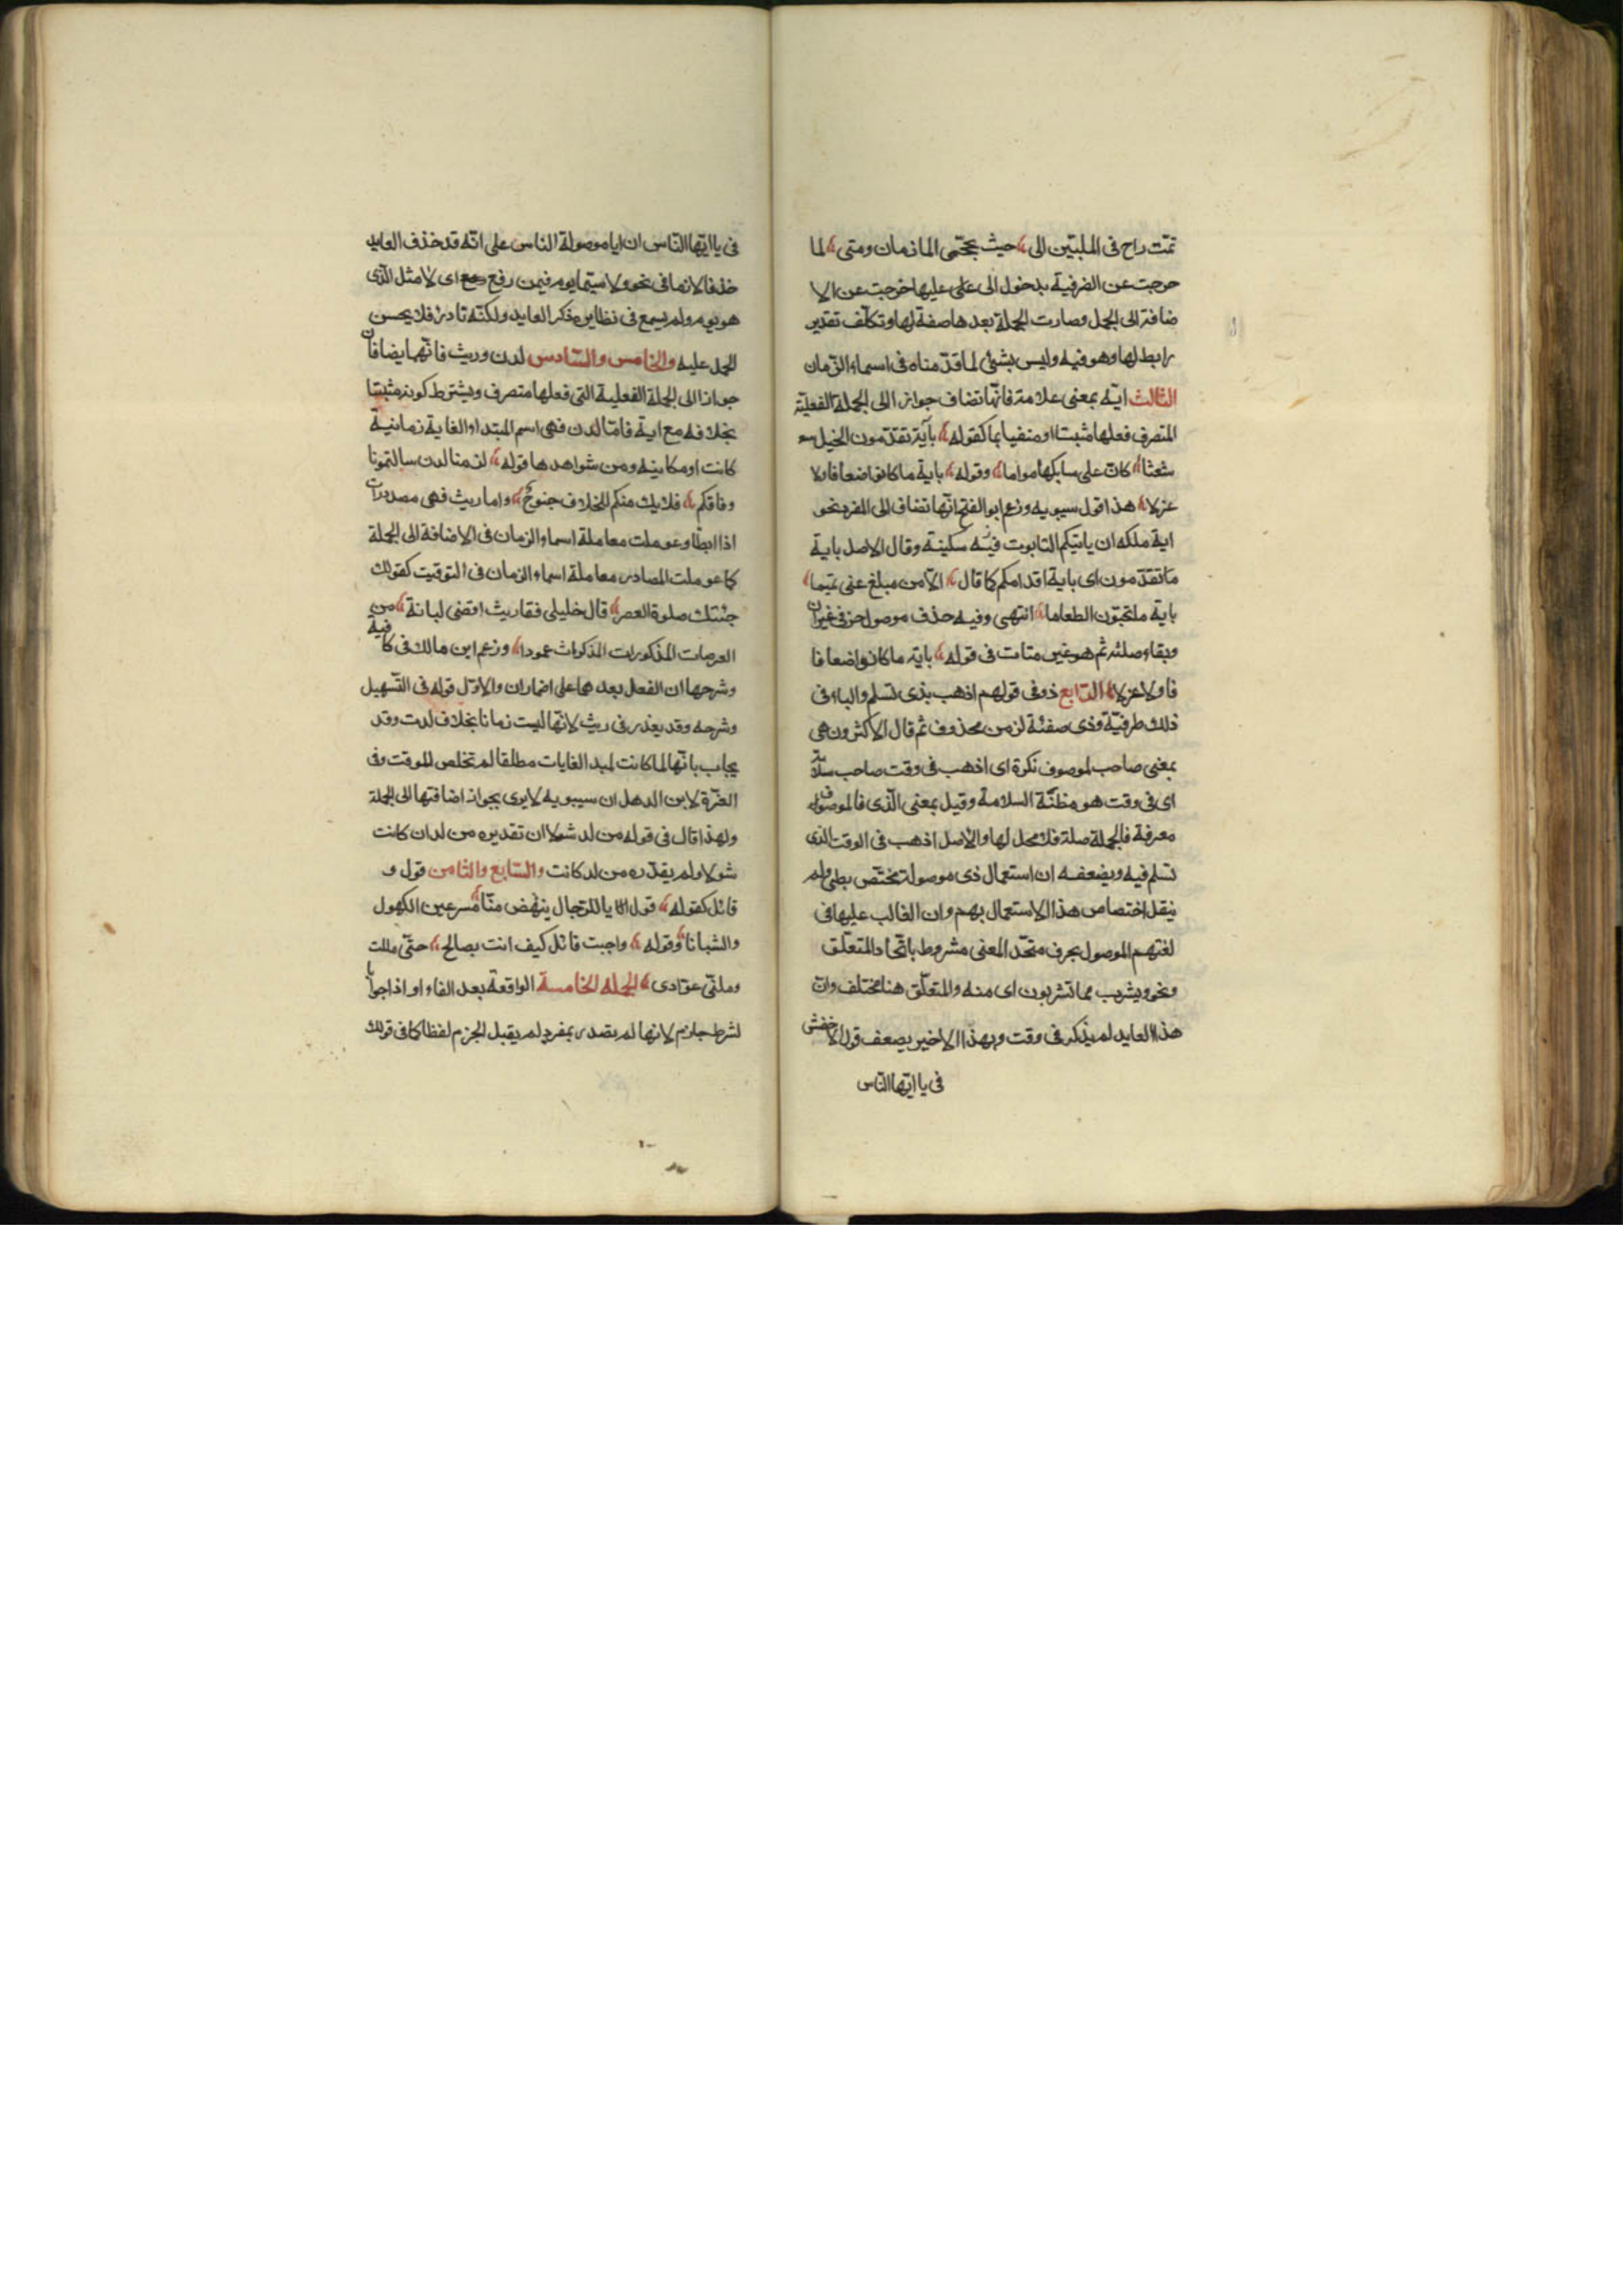 تمّت راح فى الملبّين الى حيث تحجّى المازمان ومنى لما
خرجت عن الضرفية بدخول الى على عليها خرجت عن الا
ضافة الى الجمل وصارت الجملة بعدها صفة لها وتكلّف تقدير
رابط لها وهو فيه وليس بشئ لما قدّمناه فى اسماء الزّمان
الثالث اية بمعنى علامة فانّها تضاف جوازا الى الجملة الفعليّة
المتصرف فعلها مثبتا او منفيا بما كقوله بآية تقدّمون الخيل
شعثا كانّ على سنابكها مواما وقوله باية ما كانوا ضعافا ولا
عزلا هذا قول سيبويه وزعم ابو الفتح انّها تضاف الى المفرد نحو
اية ملكه ان ياتيكم التابوت فيه سكينة وقال الاصل باية
ما تقدّمون اى باية اقدامكم كما قال الا من مبلغ عنى تميما
باية ما تحبّون الطعاما انتهى وفيه حذف موصول حرفى غير ان
وبقاء صلته ثم هو غير متات فى قوله باية ما كانوا ضعافا
فا ولا عزلا الرّابع ذو فى قولهم اذهب بذى تسلم والباء فى
ذلك ظرفيّة وذى صفة لزمن محذوف ثم قال الاكثرون هى
بمعنى صاحب لموصوف نكرة اى اذهب فى وقت صاحب سلامة
اى فى وقت هو مظنّة السلامة وقيل بمعنى الّذى فالموصوف
معرفة فالجملة صلة فلا محل لها والاصل اذهب فى الوقت الذى
تسلم فيه ويضعفه ان استعمال ذى موصولة مختّص بطئ ولم
ينقل اختصاص هذا الاستعمال بهم وان الغالب عليها فى
لغتهم الموصول بحرف متحّد المعنى مشروط باتّحاد المتعلّق
ونحو ويشرب مما تشربون اى منه والمتعلّق هنا مختلف وانّ
هذا العايد لم يذكر فى وقت وبهذا الاخير يضعف قول الاخفش
فى يا ايّها النّاس
فى يا ايّها النّاس ان ايا موصولة الناس على انّه قد حذف العايد
حذفا لازما فى نحو ولا سيّما يوم فيمن رفع اى لا مثل الّذى
هو يوم ولم يسمع فى نظايره ذكر العايد ولكنّه نادر فلا يحسن
الحمل عليه والخامس والسّادس لدن وريث فانّهما يضافان
جوازا الى الجملة الفعلية التى فعلها متصرف ويشترط كونه مثبتا
بخلافه مع اية فامّا لدن فهى اسم لمبتداء الغاية زمانية
كانت او مكانية ومن شواهدها قوله لزمنا لدن سالتمونا
وفاقكم فلا يك منكم للخلاف جنوحٌ واما ريث فهى مصدر راث
اذا ابطاْ وعوملت معاملة اسماء الزمان فى الاضافة الى الجملة
كما عوملت المصادر معاملة اسماء الزمان فى التوقيت كقولك
جئتك صلوة العصر قال خليلى فقا ريث اقضى لبانة من
العرصات المذكورات المذكوراث عهودا وزعم ابن مالك فى كافية
وشرحها ان الفعل بعدهما على اضمار ان والاوّل قوله فى التّسهيل
وشرحه وقد يعذر فى ريث لانّها ليست زمانا بخلاف لدن وقد
يجاب بانّها لما كانت لمبد الغايات مطلقا لم تخلص للوقت وفى
الغرّة لابن الدهان ان سيبويه لا يرى بجواز اضافتها الى الجملة
ولهذا قال فى قوله من لد شولا ان تقديره من لد ان كانت
شولا ولم يقدّره من لد كانت والسّابع والثامن قول و
قائل كقوله قول يا للرّجال ينهض منّا مسرعين الكهول
والشبانا وقوله واجبت قائل كيف انت بصالح حتّى مللت
وملنى عوّادى الجملة الخامسة الواقعة بعد الفاء او اذا جوابا
لشرط جازم لانها لم تصدر بمفرد لم يقبل الجزم لفظا كما فى قولك